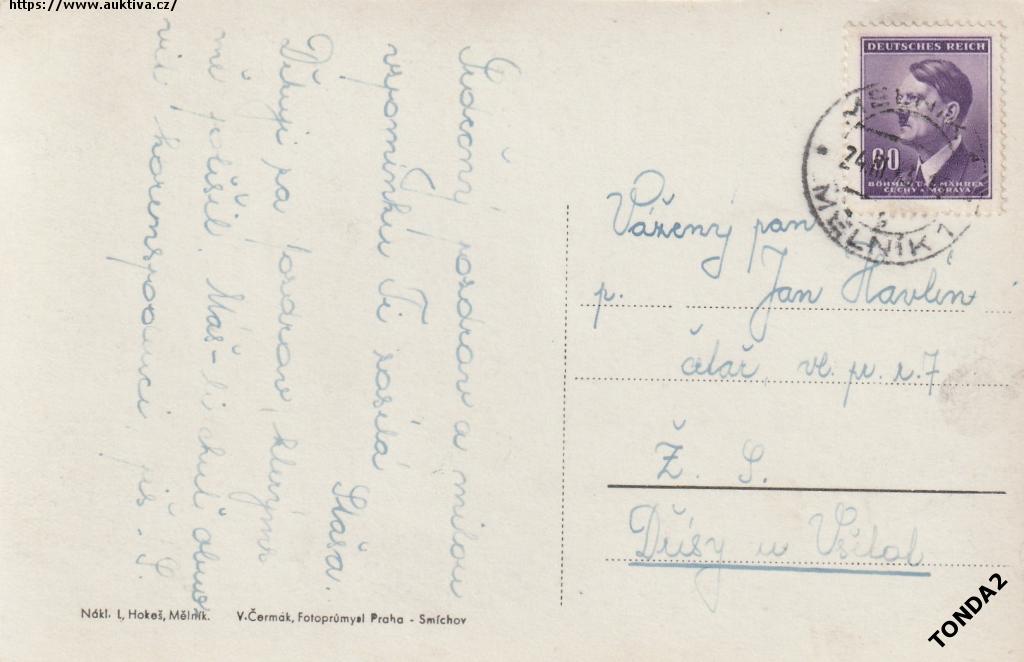 https://www.auktiva.cz/
DEUTSCHES REICH
60
BÖHMEN UND MÄHREN
ČECHY A MORAVA
MĚLNÍK 1
Srdečný pozdrav a milou
vzpomínku Ti zasílá
Staša.
Děkuji za pozdrav, kterým
mě potěšil. Máš-li chuť
piš. S.
Vážený pan
p. Jan Havlín
četař, vl. pr. č. 7
Ž. S.
Dřísy u Všetat
Nákl. L. Hokeš, Mělník. V. Čermák, Fotoprůmysl Praha - Smíchov
TONDA2